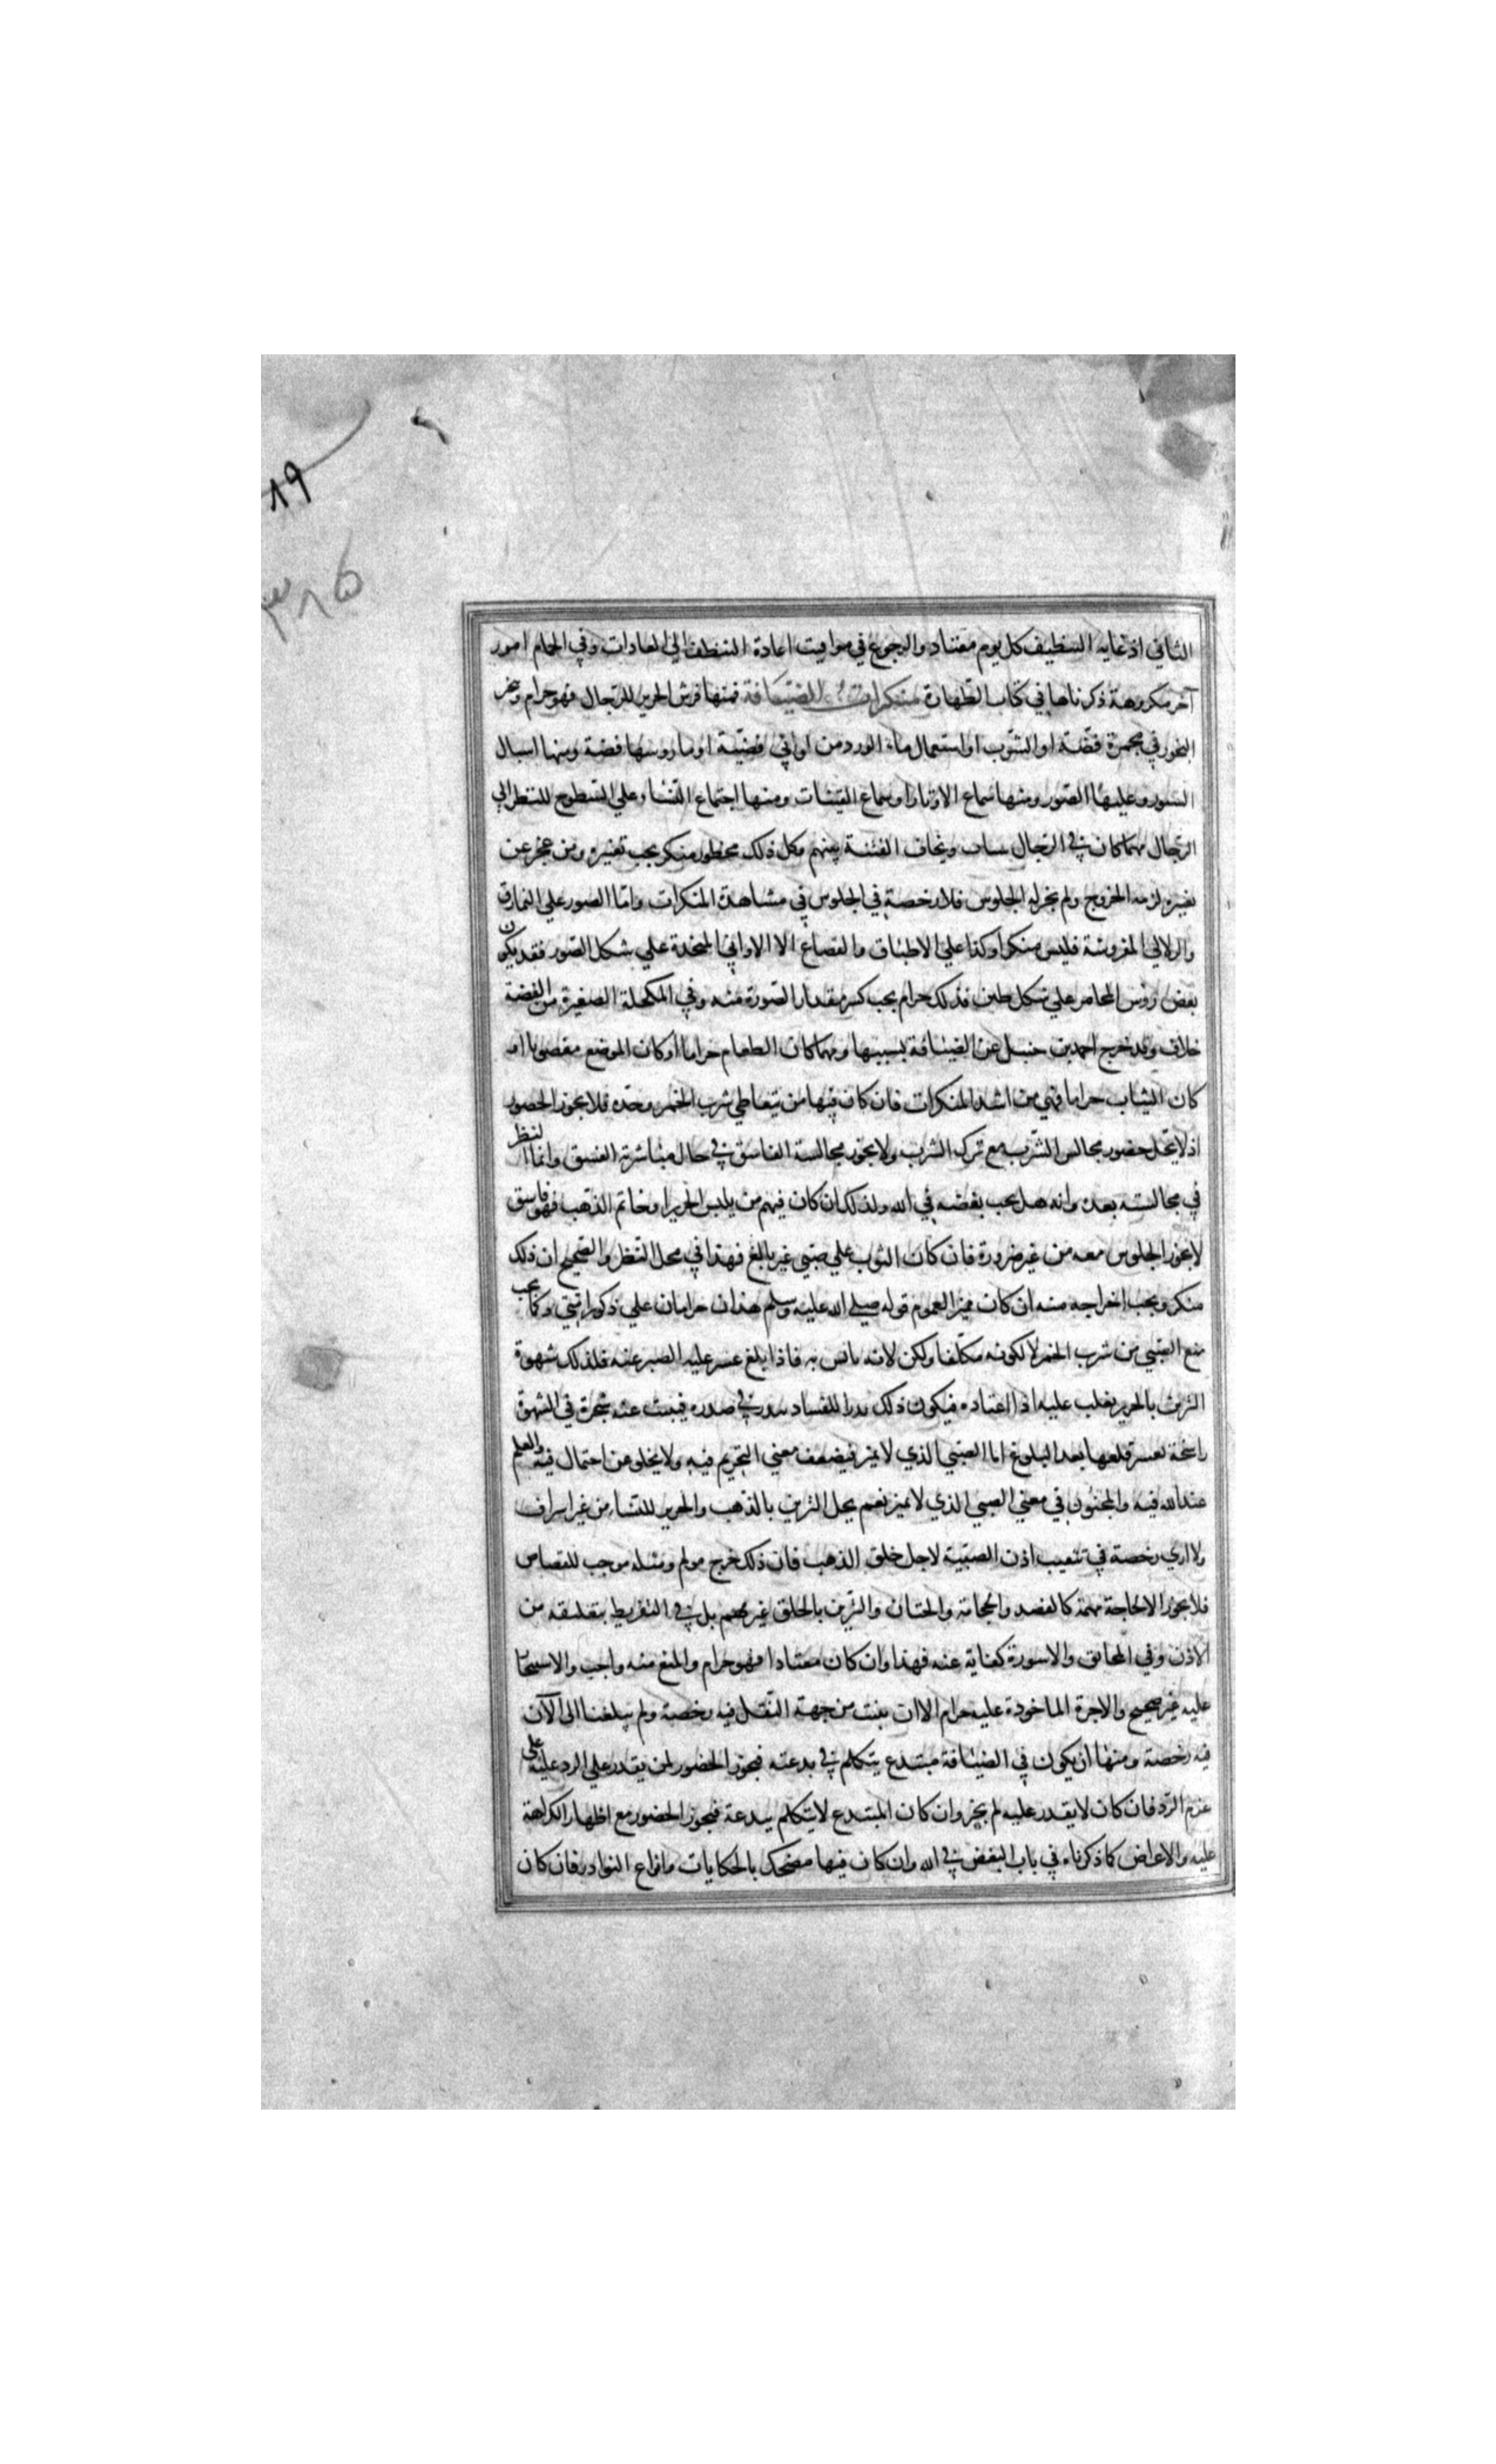 ١٩
٣٨٥
الثاني اذ غايه التنظيف كل يوم معتاد والرجوع في مواقيت اعادة التنظف الي العادات وفي الحمام امور
آخر مكروهة ذكرناها في كتاب الطهارة منكرات الضيافة فمنها فرش الحرير للرجال فهو حرام
البخور في مجمرة فضّة او الشرب او استعمال ماء الورد من اواني فضيّة او ما روسها فضة ومنها اسبال
الستور وعليها الصور ومنها سماع الاوتار او سماع القينات ومنها اجتماع النساء علي السطوح للنظر الي
الرجال مهما كان في الرجال شاب ويخاف الفتنة بينهم وكل ذلك محظور منكر يجب تغييره ومن عجز عن
تغييره لزمه الخروج ولم يجز له الجلوس فلا رخصة في الجلوس في مشاهدة المنكرات واما الصور علي النمارق
والزلالي المفروشة فليس منكرا وكذا علي الاطباق والقصاع الا الاواني المتخذة علي شكل الصور فقد يكون
بعض رؤس المجامر علي شكل طير فذلك حرام يجب كسر مقدار الصورة منه وفي المكحلة الصغيرة من الفضة
خلاف وقد خرج احمد بن حنبل عن الضيافة بسببها ومهما كان الطعام حراما او كان الموضع مغصوبا او
كان الثياب حراما فهي من اشد المنكرات فان كان فيها من يتعاطي شرب الخمر وحده فلا يجوز الحضور
اذ لا يحل حضور مجالس الشرب مع ترك الشرب ولا يجوز مجالسة الفاسق في حال مباشرته الفسق وانما النظر
في مجالسته بعده وانه هل يجب بغضه في الله ولذلك ان كان فيهم من يلبس الحرير او خاتم الذهب فهو فاسق
لا يجوز الجلوس معه من غير ضرورة فان كان الثوب علي صبّي غير بالغ فهذا في محل النظر والصحيح ان ذلك
منكر ويجب اخراجه منه ان كان مميزا لعموم قوله صلي الله عليه وسلم هذان حرامان علي ذكور امتي وكما يجب
منع الصبي من شرب الخمر لا لكونه مكلفا ولكن لانه يانس به فاذا بلغ عسر عليه الصبر عنه فلذلك شهوة
التزين بالحرير يغلب عليه اذا اعتاده فيكون ذلك بدرا للفساد يبدر في صدره فينبت عنه شجرة في الشهوة
راسخة تعسر قلعها بعد البلوغ اما الصبي الذي لا يميز فيضعف معني التحريم فيه ولا يخلو من احتمال فيه والعلم
عند الله فيه والمجنون في معني الصبي الذي لا يميز نعم يحل التزين بالذهب والحرير للنساء من غير اسراف
ولا اري رخصة في تثقيب اذن الصبّية لاجل حلق الذهب فان ذلك جرح مولم ومثله موجب للقصاص
فلا يجوز الا لحاجة مهمة كالفصد والحجامة والختان والتزين بالحلق غير مهم بل في التقريط بتعليقه من
الاذن وفي المخانق والاسورة كفاية عنه فهذا وان كان معتادا فهو حرام والمنع منه واجب والاستيجار
عليه غير صحيح والاجرة الماخوذة عليه حرام الا ان يثبت من جهة النقل فيه رخصة ولم يبلغنا الي الآن
فيه رخصة ومنها ان يكون في الضيافة مبتدع يتكلم في بدعته فيجوز الحضور لمن يقدر علي الرد عليه علي
عزم الرّد فان كان لا يقدر عليه لم يجز وان كان المبتدع لا يتكلم ببدعة فيجوز الحضور مع اظهار الكراهة
عليه والاعراض كما ذكرناه في باب البغض في الله وان كان فيها مضحك بالحكايات وانواع النوادر فان كان